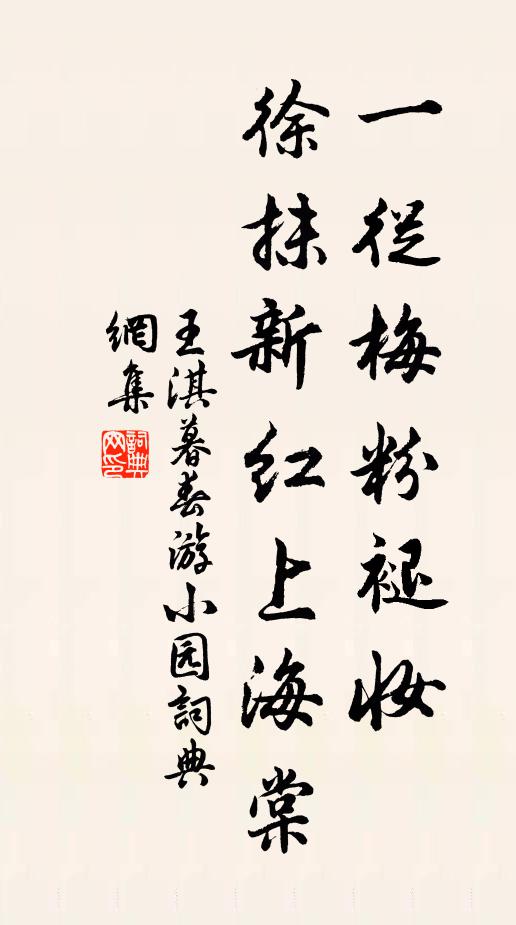 一從梅粉褪妝
徐抹新红上海棠
王淇暮春游小园詞典
網集
詞典
网印